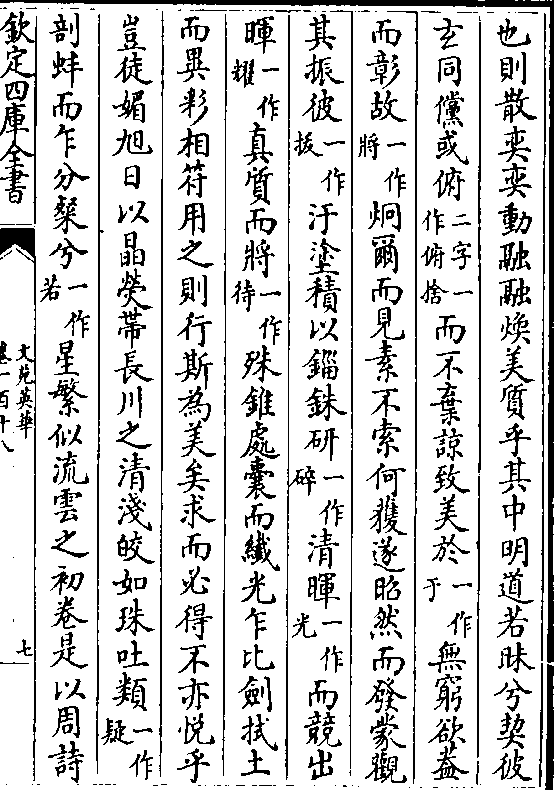 也則散奕奕動融融煥美質乎其中明道若昧兮契彼
玄同儻或俯二字一作俯捨而不棄諒致美於一作于無窮欲蓋
而彰故一作將炯爾而見素不索何獲遂昭然而發蒙觀
其振彼一作拔汙塗積以錙銖研一作碎清暉一作光而競出
暉一作耀真質而將一作待殊錐處囊而纖光乍比劍拭土
而異彩相符用之則行斯為美矣求而必得不亦悅乎
豈徒媚旭日以晶熒帶長川之清淺皎如珠吐類一作疑
剖蚌而乍分粲兮一作若星繁似流雲之初卷是以周詩
欽定四庫全書
文苑英華
卷一百十八
七